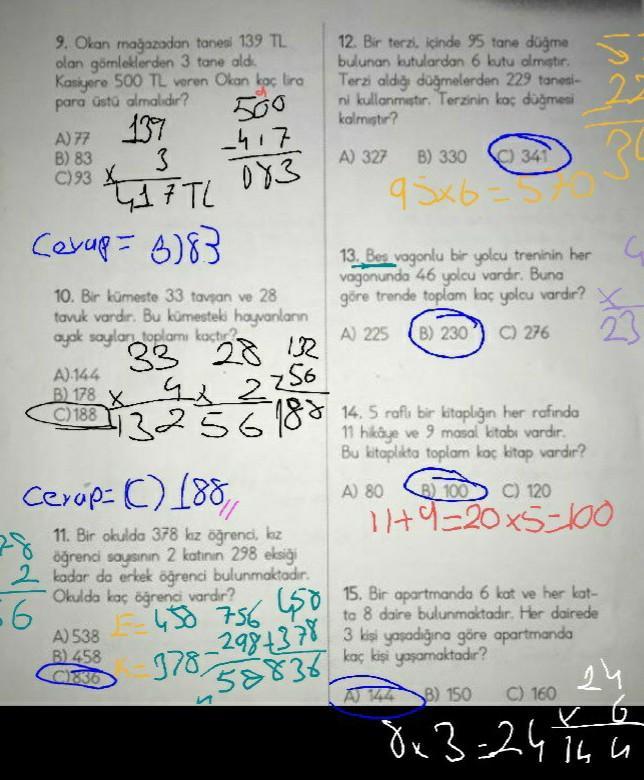 9. Okan mağazadan tanesi 139 TL
olan gömleklerden 3 tane aldı.
Kasiyere 500 TL veren Okan kaç lira
para üstü almalıdır?
A) 77
B) 83
C) 93
139
x 3
417 TL
500
-417
083
Cevap = B) 83
10. Bir kümeste 33 tavşan ve 28
tavuk vardır. Bu kümesteki hayvanların
ayak sayıları toplamı kaçtır?
A) 144
B) 178
C) 188
33
x 4
132
28
x 2
56
132
56
188
Cevap = C) 188
11. Bir okulda 378 kız öğrenci, kız
öğrenci sayısının 2 katının 298 eksiği
kadar da erkek öğrenci bulunmaktadır.
Okulda kaç öğrenci vardır?
A) 538
B) 458
C) 836
78
2
56
E= 458
K= 378
756
-298
458
+378
836
12. Bir terzi, içinde 95 tane düğme
bulunan kutulardan 6 kutu almıştır.
Terzi aldığı düğmelerden 229 tanesi-
ni kullanmıştır. Terzinin kaç düğmesi
kalmıştır?
A) 327 B) 330 C) 341
95x6=570
13. Beş vagonlu bir yolcu treninin her
vagonunda 46 yolcu vardır. Buna
göre trende toplam kaç yolcu vardır?
A) 225 B) 230 C) 276
x
23
14. 5 raflı bir kitaplığın her rafında
11 hikâye ve 9 masal kitabı vardır.
Bu kitaplıkta toplam kaç kitap vardır?
A) 80 B) 100 C) 120
11+9=20x5=100
15. Bir apartmanda 6 kat ve her kat-
ta 8 daire bulunmaktadır. Her dairede
3 kişi yaşadığına göre apartmanda
kaç kişi yaşamaktadır?
A) 144 B) 150 C) 160
8x3=24
24
x 6
144